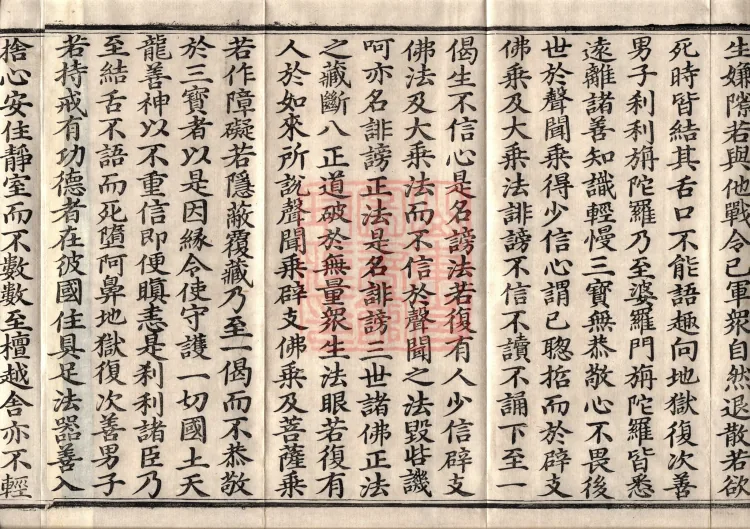 生嫌隙若與他戰令已軍衆自然退散若欲
死時皆結其舌口不能語趣向地獄復次善
男子刹利旃陀羅乃至婆羅門旃陀羅皆悉
遠離諸善知識輕慢三寶無恭敬心不畏後
世於聲聞乘得少信心謂已聦悊而於辟支
佛乘及大乘法誹謗不信不讀不誦下至一
偈生不信心是名謗法若復有人少信辟支
佛法及大乘法而不信於聲聞之法毀呰譏
呵亦名誹謗正法是名誹謗三世諸佛正法
之藏斷八正道破於無量衆生法眼若復有
人於如來所說聲聞乘辟支佛乘及菩薩乘
若作障礙若隱蔽覆藏乃至一偈而不恭敬
於三寶者以是因緣令使守護一切國土天
龍善神以不重信即便瞋恚是刹利諸臣乃
至結舌不語而死墮阿鼻地獄復次善男子
若持戒有功德者在彼國住具足法器善入
捨心安住靜室而不數數至檀越舍亦不輕